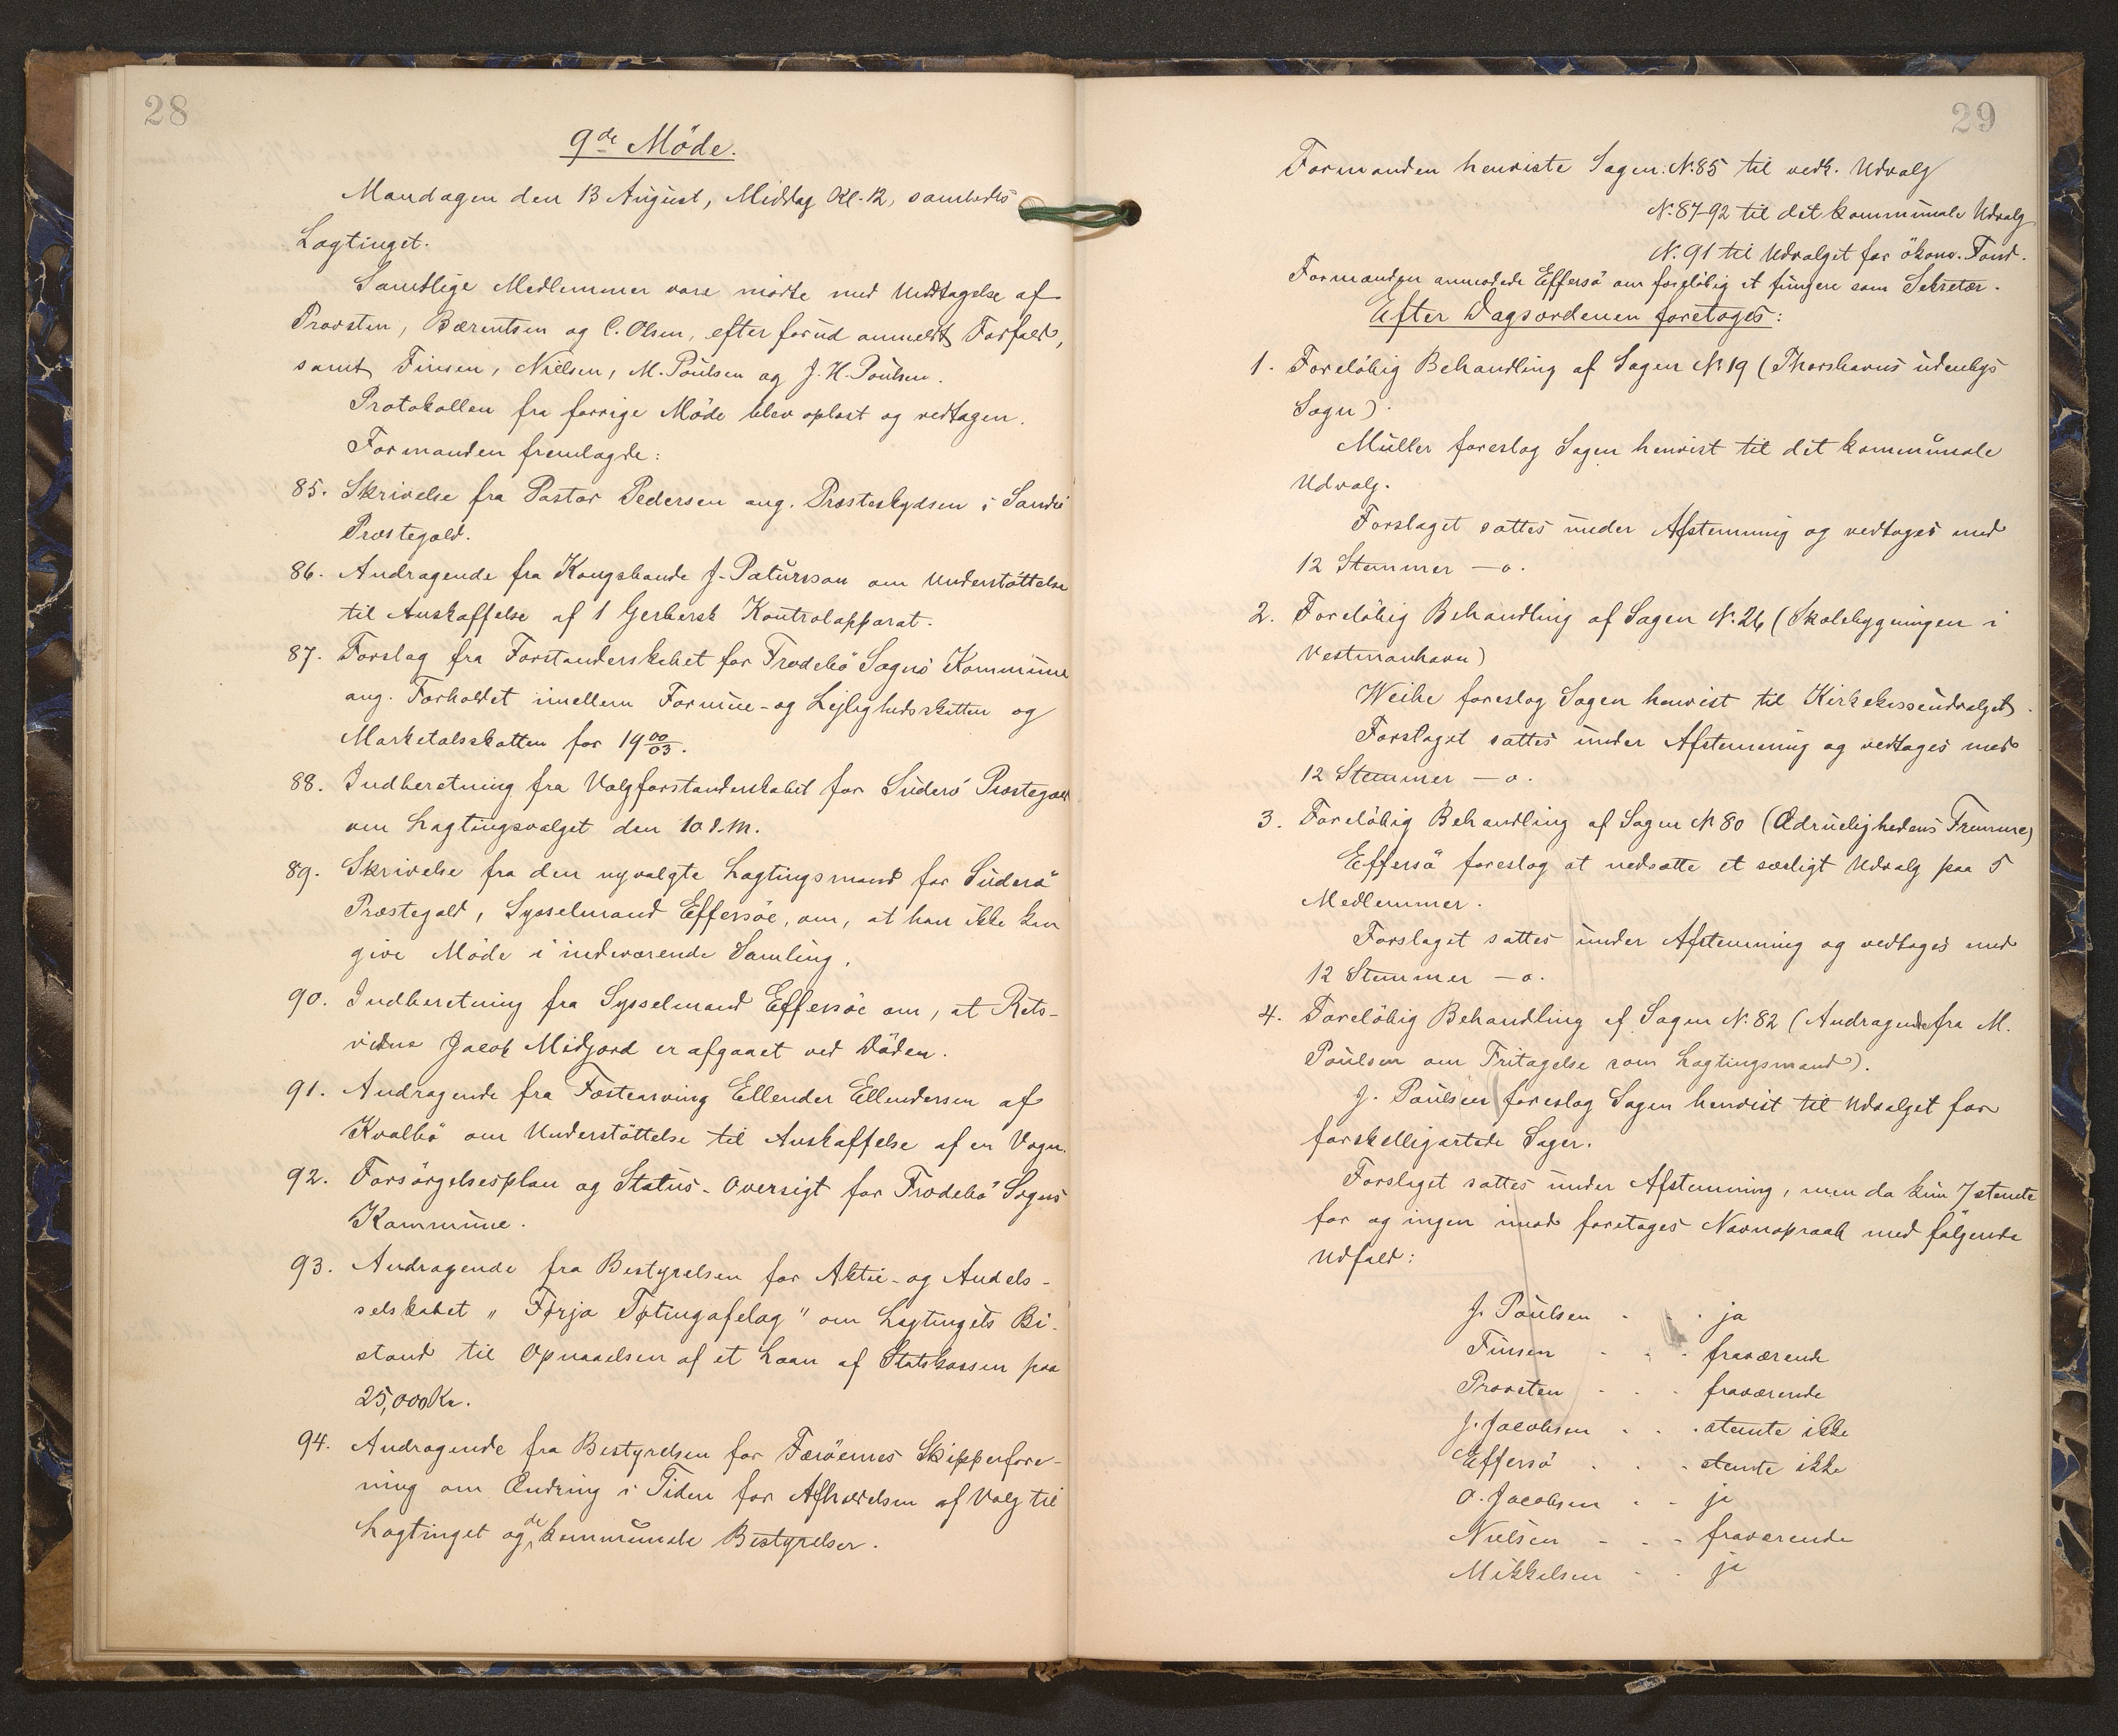 28
9de Möde.
Mandagen den 13 August, Middag Kl. 12, samledes
Lagtinget.
Samtlige Medlemmer vare mødte med Undtagelse af
Provsten, Bærentsen og C. Olsen, efter forud anmeldt Forfald,
samt Finsen, Nielsen, M. Poulsen og J. H. Poulsen.
Protokollen fra forrige Möde blev oplæst og vedtagen.
Formanden fremlagde:
85. Skrivelse fra Pastor Pedersen ang. Præsteskydsen i Sandø
Præstegæld.
86. Andragende fra Kongsbonde J. Patursson om Understöttelse
til Anskaffelse af 1 Gerbersk Kontrolapparat.
87. Forslag fra Forstanderskabet for Trodebö Sogns Kommune
ang. Forholdet imellem Formue- og Lejlighedsskatten og
Marketalsskatten for 19 00/03.
88. Indberetning fra Valgforstanderskabet for Suderö Præstegæld
om Lagtingsvalget den 10 d. M.
89. Skrivelse fra den nyvalgte Lagtingsmand for Suderö
Præstegæld, Sysselmand Effersöe, om, at han ikke kan
give Möde i indeværende Samling.
90. Indberetning fra Sysselmand Effersöe om, at Rets-
vidne Jacob Midjord er afgaaet ved Döden.
91. Andragende fra Fæstearving Ellender Ellendersen af
Kvalbö om Understöttelse til Anskaffelse af en Vogn.
92. Forsörgelsesplan og Status-Oversigt for Trodebö Sogns
Kommune.
93. Andragende fra Bestyrelsen for Aktie- og Andels-
selskabet "Førja Tøtingafelag" om Lagtingets Bi-
stand til Opnaaelsen af et Laan af Statskassen paa
25,000 Kr.
94. Andragende fra Bestyrelsen for Færöernes Skipperfore-
ning om Ændring i Tiden for Afholdelsen af Valg til
Lagtinget og de kommunale Bestyrelser.
29
Formanden henviste Sagen: N. 85 til vedk. Udvalg
N. 87-92 til det kommunale Udvalg
N. 91 til Udvalget for ökon. Fond.
Formanden anmodede Effersö om foreløbig at fungere som Sekretær.
Efter Dagsordenen foretoges:
1. Forelöbig Behandling af Sagen N. 19 (Thorshavns udenbys
Sogn).
Müller foreslog Sagen henvist til det kommunale
Udvalg.
Forslaget sattes under Afstemning og vedtoges med
12 Stemmer – 0.
2. Forelöbig Behandling af Sagen N. 26 (Skolebygningen i
Vestmanhavn)
Weihe foreslog Sagen henvist til Kirkekasseudvalget.
Forslaget sattes under Afstemning og vedtoges med
12 Stemmer – 0.
3. Forelöbig Behandling af Sagen N. 80 (Ædruelighedens Fremme)
Effersö foreslog at nedsætte et særligt Udvalg paa 5
Medlemmer.
Forslaget sattes under Afstemning og vedtoges med
12 Stemmer – 0.
4. Forelöbig Behandling af Sagen N. 82 (Andragende fra M.
Poulsen om Fritagelse som Lagtingsmand).
J. Poulsen foreslog Sagen henvist til Udvalget for
forskelligartede Sager.
Forslaget sattes under Afstemning, men da kun 7 stemte
for og ingen imod foretages Navneopraab med fölgende
Udfald:
J. Poulsen - - ja
Finsen - - - fraværende
Provsten - - - fraværende
J. Jacobsen - - - stemte ikke
Effersö - - - stemte ikke
O. Jacobsen - - ja
Nielsen - - - fraværende
Mikkelsen - - ja